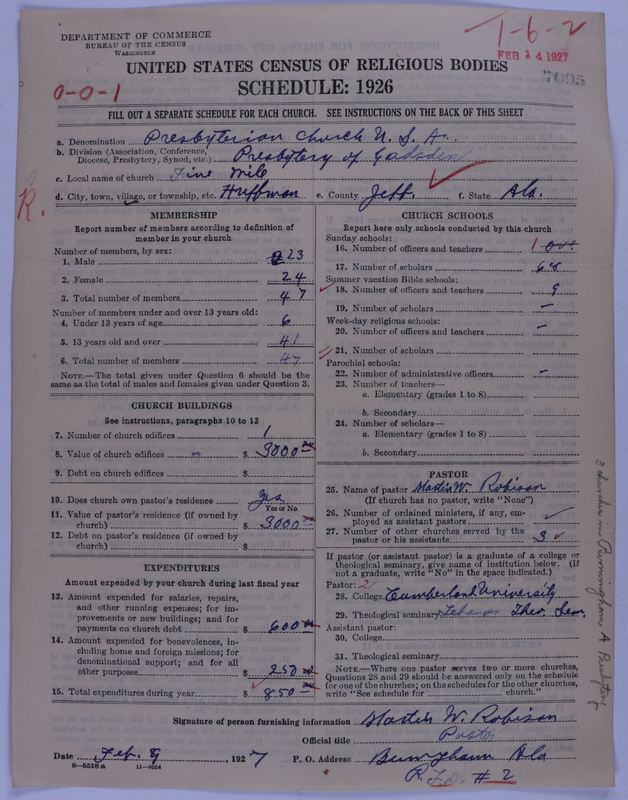 DEPARTMENT OF COMMERCE
BUREAU OF THE CENSUS
WASHINGTON
1-6-2
FEB 14 1927
7095
UNITED STATES CENSUS OF RELIGIOUS BODIES
SCHEDULE: 1926
0-0-1
FILL OUT A SEPARATE SCHEDULE FOR EACH CHURCH. SEE INSTRUCTIONS ON THE BACK OF THIS SHEET
a. Denomination Presbyterian Church U. S. A.
b. Division (Association, Conference, Diocese, Presbytery, Synod, etc.) Presbytery of Gadsden
c. Local name of church Five Mile
d. City, town, village, or township, etc. Huffman e. County Jeff. f. State Ala.
R.
MEMBERSHIP
Report number of members according to definition of member in your church
Number of members, by sex:
1. Male 23
2. Female 24
3. Total number of members 47
Number of members under and over 13 years old:
4. Under 13 years of age 6
5. 13 years old and over 41
6. Total number of members 47
NOTE.—The total given under Question 6 should be the same as the total of males and females given under Question 3.
CHURCH BUILDINGS
See instructions, paragraphs 10 to 12
7. Number of church edifices 1
8. Value of church edifices $ 3000
9. Debt on church edifices $
10. Does church own pastor's residence Yes
Yes or No
11. Value of pastor's residence (if owned by church) $ 3000
12. Debt on pastor's residence (if owned by church) $
EXPENDITURES
Amount expended by your church during last fiscal year
13. Amount expended for salaries, repairs, and other running expenses; for improvements or new buildings; and for payments on church debt $ 600
14. Amount expended for benevolences, including home and foreign missions; for denominational support; and for all other purposes $ 250
15. Total expenditures during year $ 850
CHURCH SCHOOLS
Report here only schools conducted by this church
Sunday schools:
16. Number of officers and teachers 1 one
17. Number of scholars 68
Summer vacation Bible schools:
18. Number of officers and teachers 9
19. Number of scholars —
Week-day religious schools:
20. Number of officers and teachers —
21. Number of scholars
Parochial schools:
22. Number of administrative officers —
23. Number of teachers—
a. Elementary (grades 1 to 8)
b. Secondary
24. Number of scholars—
a. Elementary (grades 1 to 8)
b. Secondary
PASTOR
25. Name of pastor Martin W. Robison
(If church has no pastor, write "None")
26. Number of ordained ministers, if any, employed as assistant pastors
27. Number of other churches served by the pastor or his assistants 3
If pastor (or assistant pastor) is a graduate of a college or theological seminary, give name of institution below. (If not a graduate, write "No" in the space indicated.)
Pastor: 2
28. College Cumberland University
29. Theological seminary Lebanon Theo. Sem.
Assistant pastor:
30. College
31. Theological seminary
NOTE.—Where one pastor serves two or more churches, Questions 28 and 29 should be answered only on the schedule for one of the churches; on the schedules for the other churches, write "See schedule for church."
3 churches in Birmingham A Presbytery
Signature of person furnishing information Martin W. Robison
Official title Pastor
Date Feb. 9, 1927 P. O. Address Birmingham Ala
8—5518a 11—9054
R. F. D. # 2